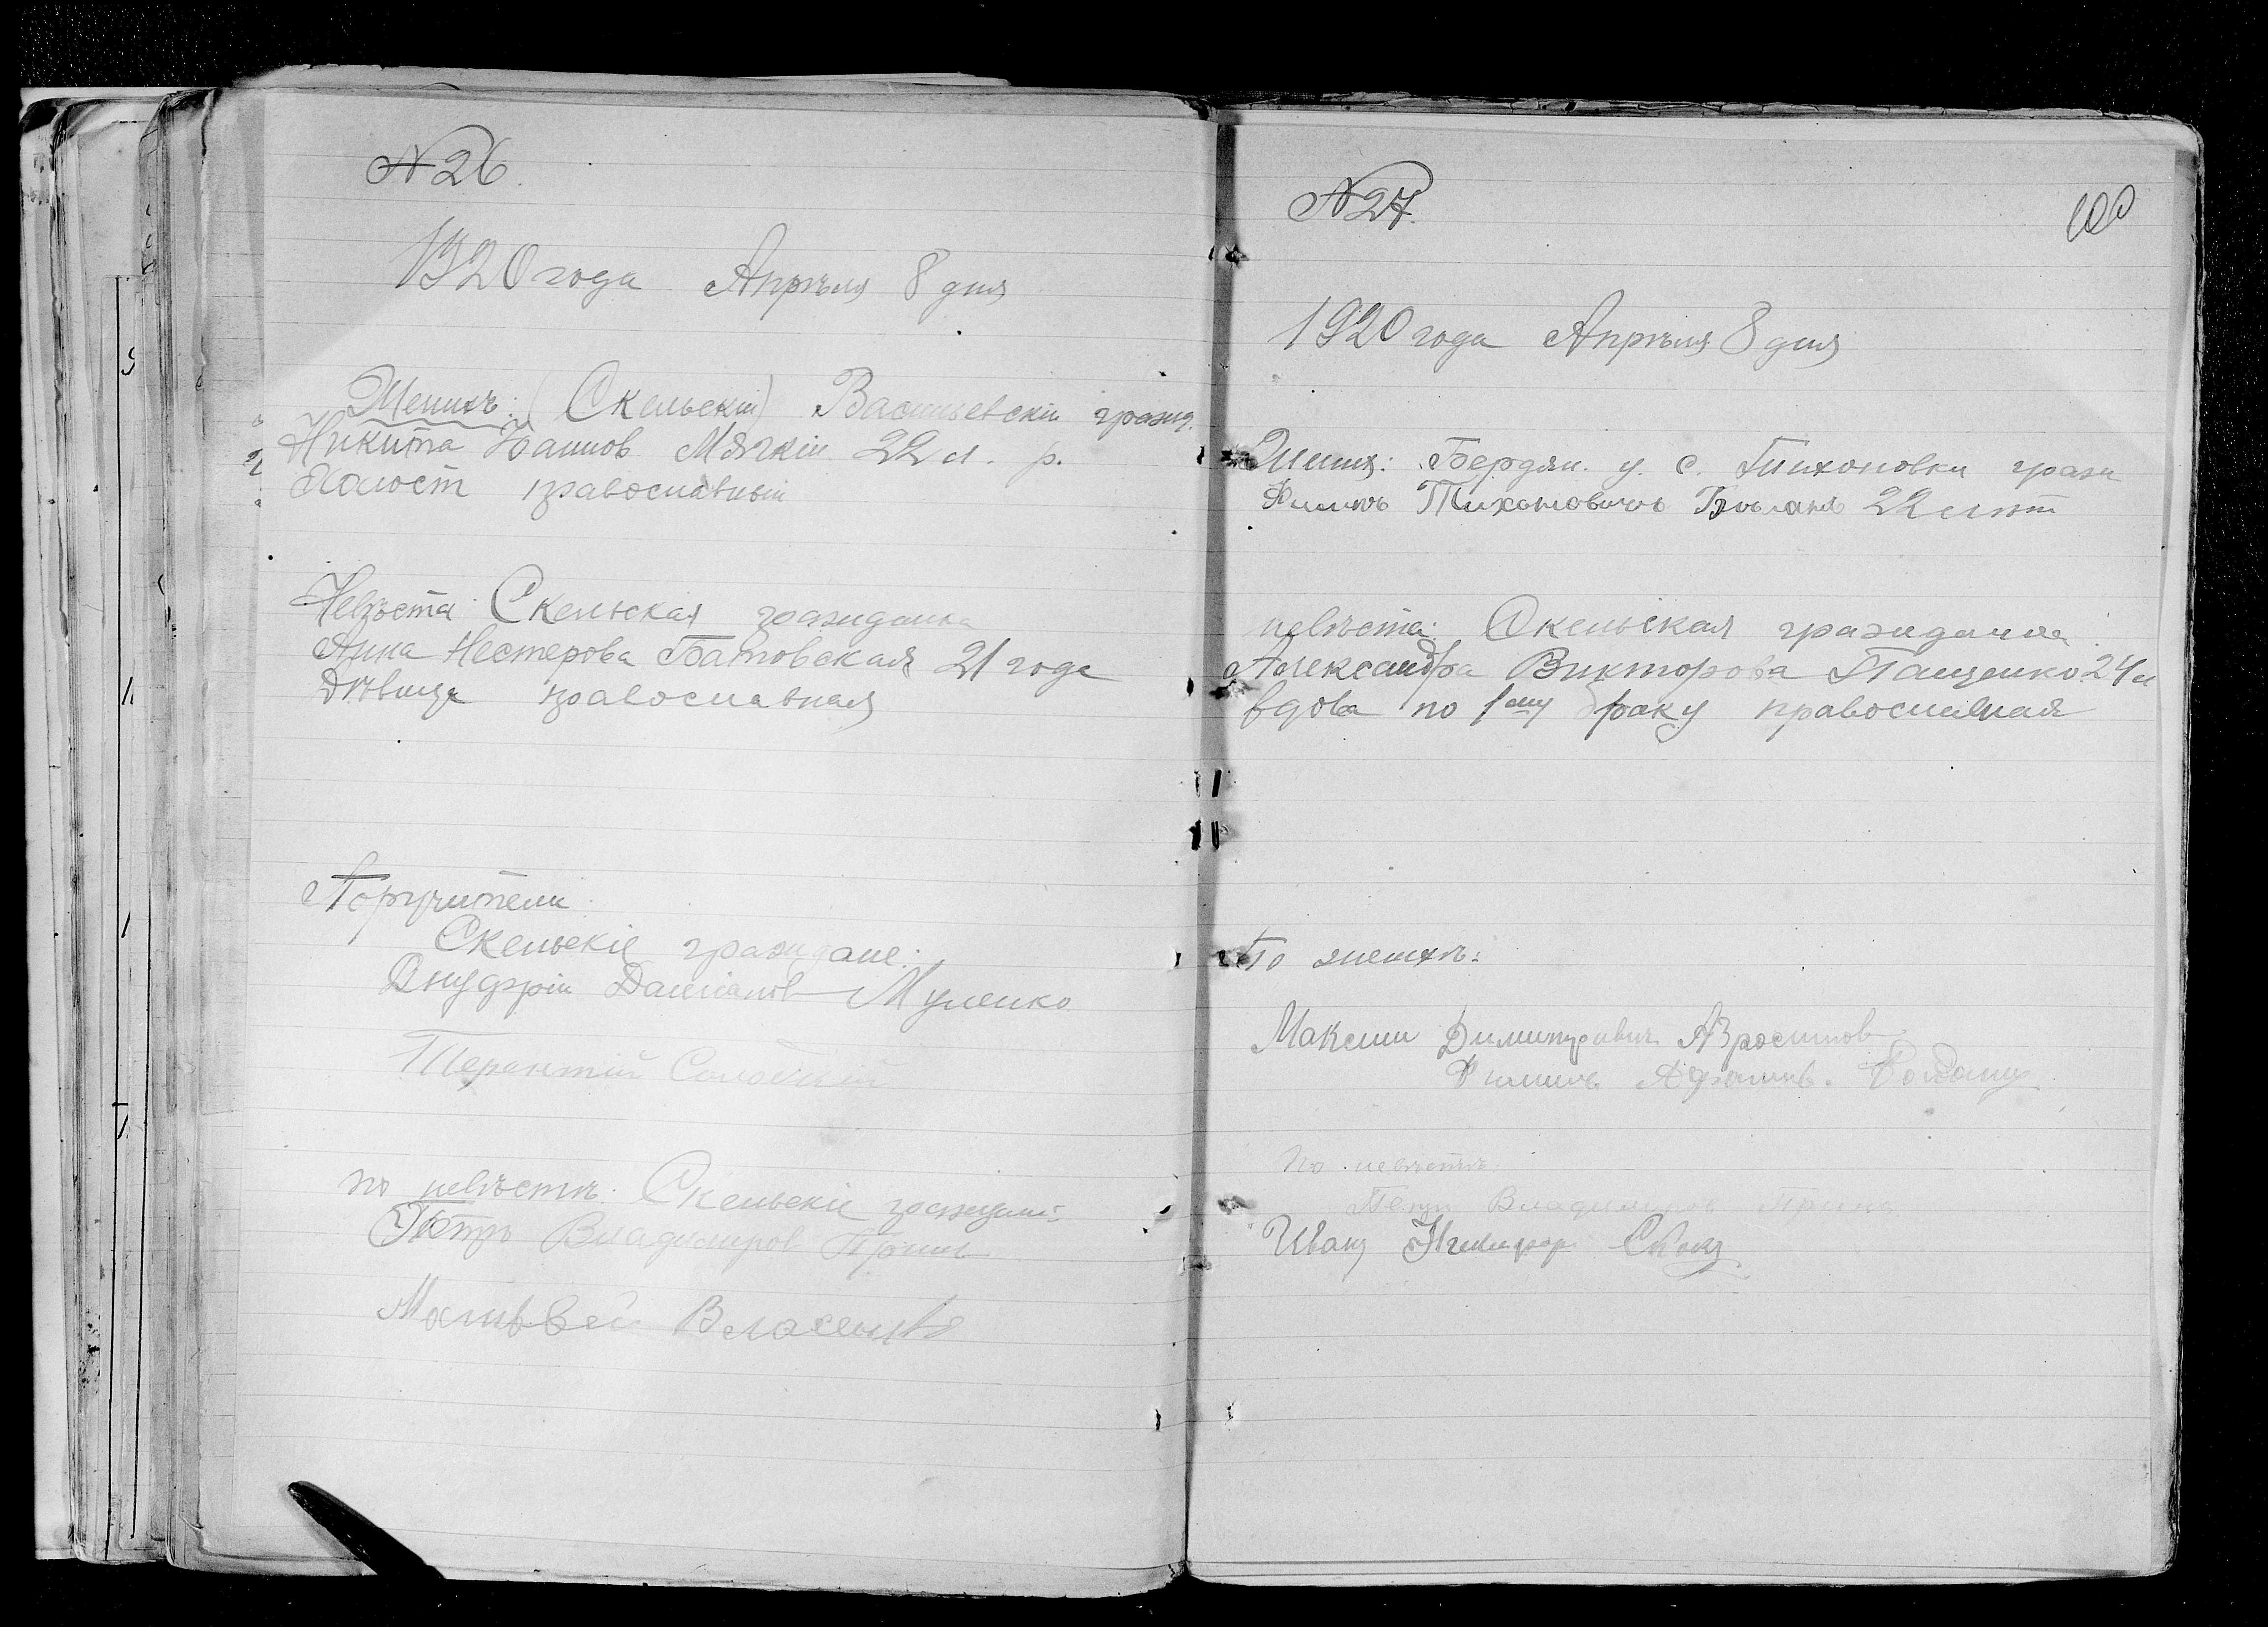 N 26.
1920 года Апрѣля 8 дня
Женихъ: (Скельскій) Васильевскій гражд.
Никита Мягкій 22 л. р.
Холост православный
Невѣста: Скельская гражданка
Анна Нестерова Батовская 21 года
Дѣвица православная
Поручители:
Скельскіе граждане:
Онуфрій Даміанов Муленко
Терентій
по невѣстѣ: Скельскіе граждане
Петръ Владимиров
Матвѣй Власенко
N 27.
100
1920 года Апрѣля 8 дня
Женихъ: Бердян. у. с. Тихоновки гражд
Филипъ Тихоновичъ 22 лѣт
невѣста: Скельская гражданка
Александра Викторова Пащенко 24 л
вдова по 1ому браку православная
По женихѣ:
Максим Димитріевичъ
Филипъ
по невѣстѣ:
Петръ Владимиров
Иванъ Никифор